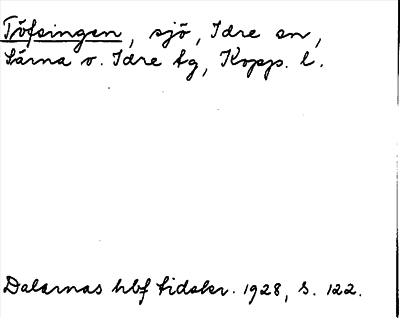 Töfsingen, sjö, Idre sn,
Särna o. Idre tg, Kopp. l.
Dalarnas hbf tidskr. 1928, s. 122.